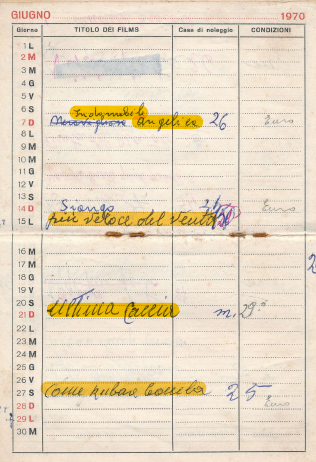 GIUGNO 1970
Giorno TITOLO DEI FILMS Casa di noleggio CONDIZIONI
1 L
2 M
3 M
4 G
5 V
6 S Indomabile
7 D Meravigliosa Angelica 26 Euro
8 L
9 M
10 M
11 G
12 V
13 S
14 D Euro
15 L più veloce del vento
16 M
17 M
18 G
19 V
20 S ultima Caccia
21 D m. 29
22 L
23 M
24 M
25 G
26 V
27 S Come rubare bomba 25
28 D Euro
29 L
30 M